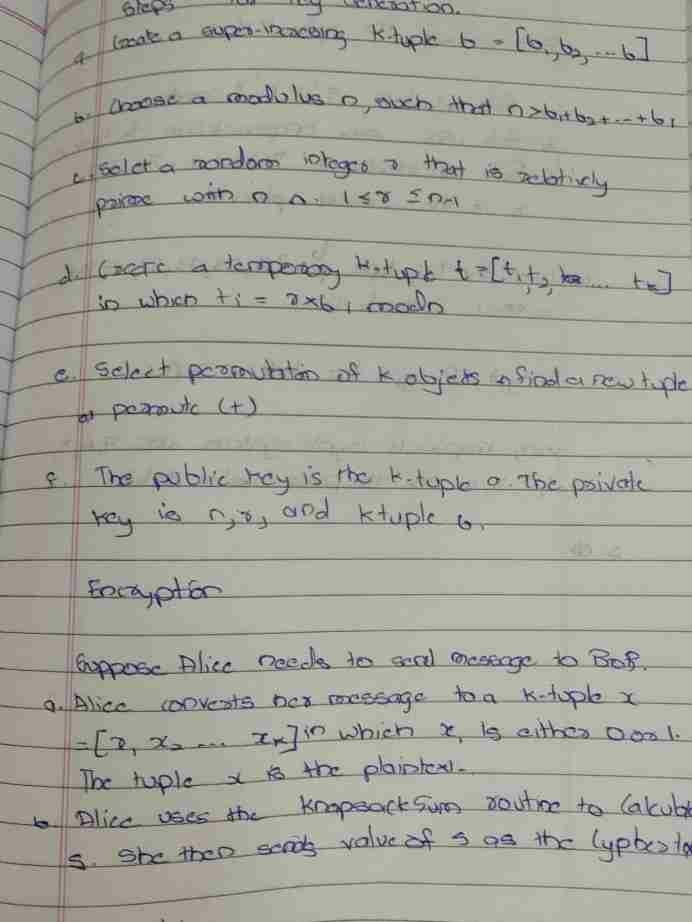 Steps Key Generation.
a. Create a super-increasing k-tuple b = [b1, b2, ... b]
b. Choose a modulus n, such that n > b1 + b2 + ... + b1
c. Select a random integer r that is relatively
prime with n n. 1 ≤ r ≤ n-1
d. Create a temporary k-tuple t = [t1, t2, ... tk]
in which ti = r × b1 mod n
e. Select permutation of k objects n find a new tuple
a1 permute (t)
f. The public key is the k-tuple a. The private
key is n, r, and k tuple b.
Encryption
Suppose Alice needs to send message to Bob.
a. Alice converts her message to a k-tuple x
= [x, x2 ... xk] in which x, is either 0 or 1.
The tuple x is the plaintext.
b. Alice uses the KnapsackSum routine to Calcul
s. She then sends value of s as the Cypherte